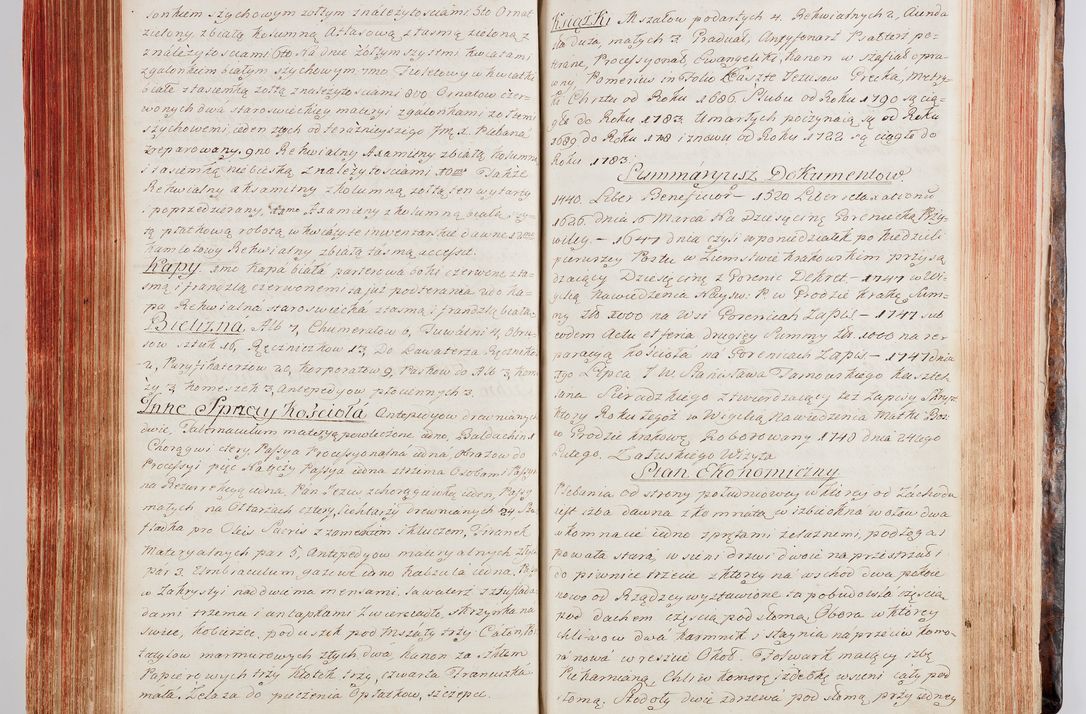 lonkiem szychowym zołtym z należytościami 5to Ornat
zielony z białą kolumną Atłasową z tasmą zieloną z
z należytościami 6to na dnie żołtym z zystmi kwiatami
z galonkiem białym szychowym 7mo Fioletowy w kwiatki
białe z tasiemką żołtą z należytościami 8vo Ornatow czer-
wonych dwa staroswieckiey materyi z galonkami zołtemi
szychowemi ieden z tych od teraznieyszego Jm. X. Plebana
zreparowany, 9no Rekwialny Axamitny z białą kolumną
i tasiemką niebieską z należytościami 10mo Także
Rekwialny aksamitny z kolumną żołtą ten wytarty
i poprzedzierany, Axamitny z kolumną białą szy-
tą płatkową robotą w kwiaty te inwentarskie dawne 12mo
kamlotowy Rekwialny z białą tasmą uccessit.
Kapy 1mo Kapa biała parterowa boki czerwone z tas-
mą i frandzlą czerwonemi iuż podszerania 2do Ka-
pa Rekwialna staroswiecka z tasmą i frandzlą białą
Bielizna Alb 7, Chumerałow 6, Tuwalni 4, Obru-
sow sztuk 16, Ręczniczkow 13, Do Lawaterza Ręcznikow
2, Puryfikaterzow 26, Korporałow 9, Paskow do Alb 3, Kom-
ży 3, Komeszek 3, Antepedyow płociennych 3.
Inne Sprzęty Kościoła Antepedyow drewnianych
dwie, Tabernaculum materyą powleczone iedno, Baldachim 1
Chorągwi cztery, Passya Processyonalna iedna, Obrazow do
Processyi pięć Na tęczy Passya iedna z trzema Osobami Passya
na Rezurrekcyą iedna, Pan Jezus, z chorągiewką ieden, Passyi
małych na Ołtarzach cztery, Lichtarzy drewnianych 24 Szu-
fladka pro Oleis Sacris z zamkiem i kluczem, Firanek
Materyalnych par 5, Antepedyow materyalnych złych
par 3, Umbraculum gazowe iedno Kabzula iedna,
w Zakrystyi nad dwiema mensami, Lawaterz z szuflada-
dami trzema i antapkami Zwierciadło, skrzynka na
swiece, Kobarzec, poduszek pod Mszały trzy, Całon, Por-
tatylow marmurowych złych dwa, Kanon za szkłem
Papierowych trzy Kłotek trzy, czwarta Franciszka
mała, Zelaza do pieczenia Opłatkow, szczepce.
Książki Mszałow podartych 4, Rekwialnych 2, Aenda
iedna duża, małych 3 Graduał, Antyfonarz Psałterz po-
trane, Processyonał, Ewangeliki, Kanon w szafiał opra-
wny, Pomerius in Folio Kaszte Jezusow Greka, Metry-
ki Chrztu od Roku 1686. Slubu od Roku 1790 są cią-
głe do Roku 1783. Umarłych poczynaią się od Roku
1689 do Roku 1718 i znowu od Roku 1722 są ciągłe do
Roku 1783.
Summaryusz Dokumentow
1440. Liber Beneficior — 1520 Liber retaxationū
1626. dnia 16 Marca Na Dziesięcinę Porenicką Przy-
wiley. — 1647 dnia czyli w poniedziałek po Niedzieli
pierwszey Postu w Ziemstwie Krakowskim przysą-
dzaiący Dziesięcinę z Porenic Dekret — 1747 w Wi-
gilią Nawiedzenia Nayśw: P. w Grodzie Krakọ Sum-
my zło 2000 na Wsi Porenicach Zapis — 1747 sub
eodem Actu et feria drugiey Summy Zł. 1000 na rep-
paracyą Kościoła na Porenicach Zapis — 1747 dnia
1go Lipca J. W. Stanisława Tarnowskiego Kaszte-
lana Sieradzkiego stwierdzaiący też Zapisy Skrypt
który Roku tegoż w Wigilią Nawiedzenia Matki Bos:
w Grodzie Krakowọ Roborowany 1749 dnia 24tego
Lutego, Załuskiego Wizyta
Stan Ekonomiczny
Plebania od strony południowey w którey od Zachodu
iest izba dawna z komnatą w izbie okna w ołow dwa
w komnacie iedno z prętami żelaznemi, podłoga i
powała stara, w sieni drzwi dwoie na przestrzał i
do piwnice trzecie z którey na wschod dwa pokoie
nowo od Rządzcy wystawione ta pobudowla częscią
pod dachem częscią pod słomą, Obora w którey
chliwow dwa karmnik i staynia naprzeciw komo-
ra nowa w reszcie Okoł. Folwark maiący izbę
Piekarnianą, Chliw komorę, izdebkę w sieni cały pod
słomą; Stodoły dwie z drzewa pod słomą przy iedney